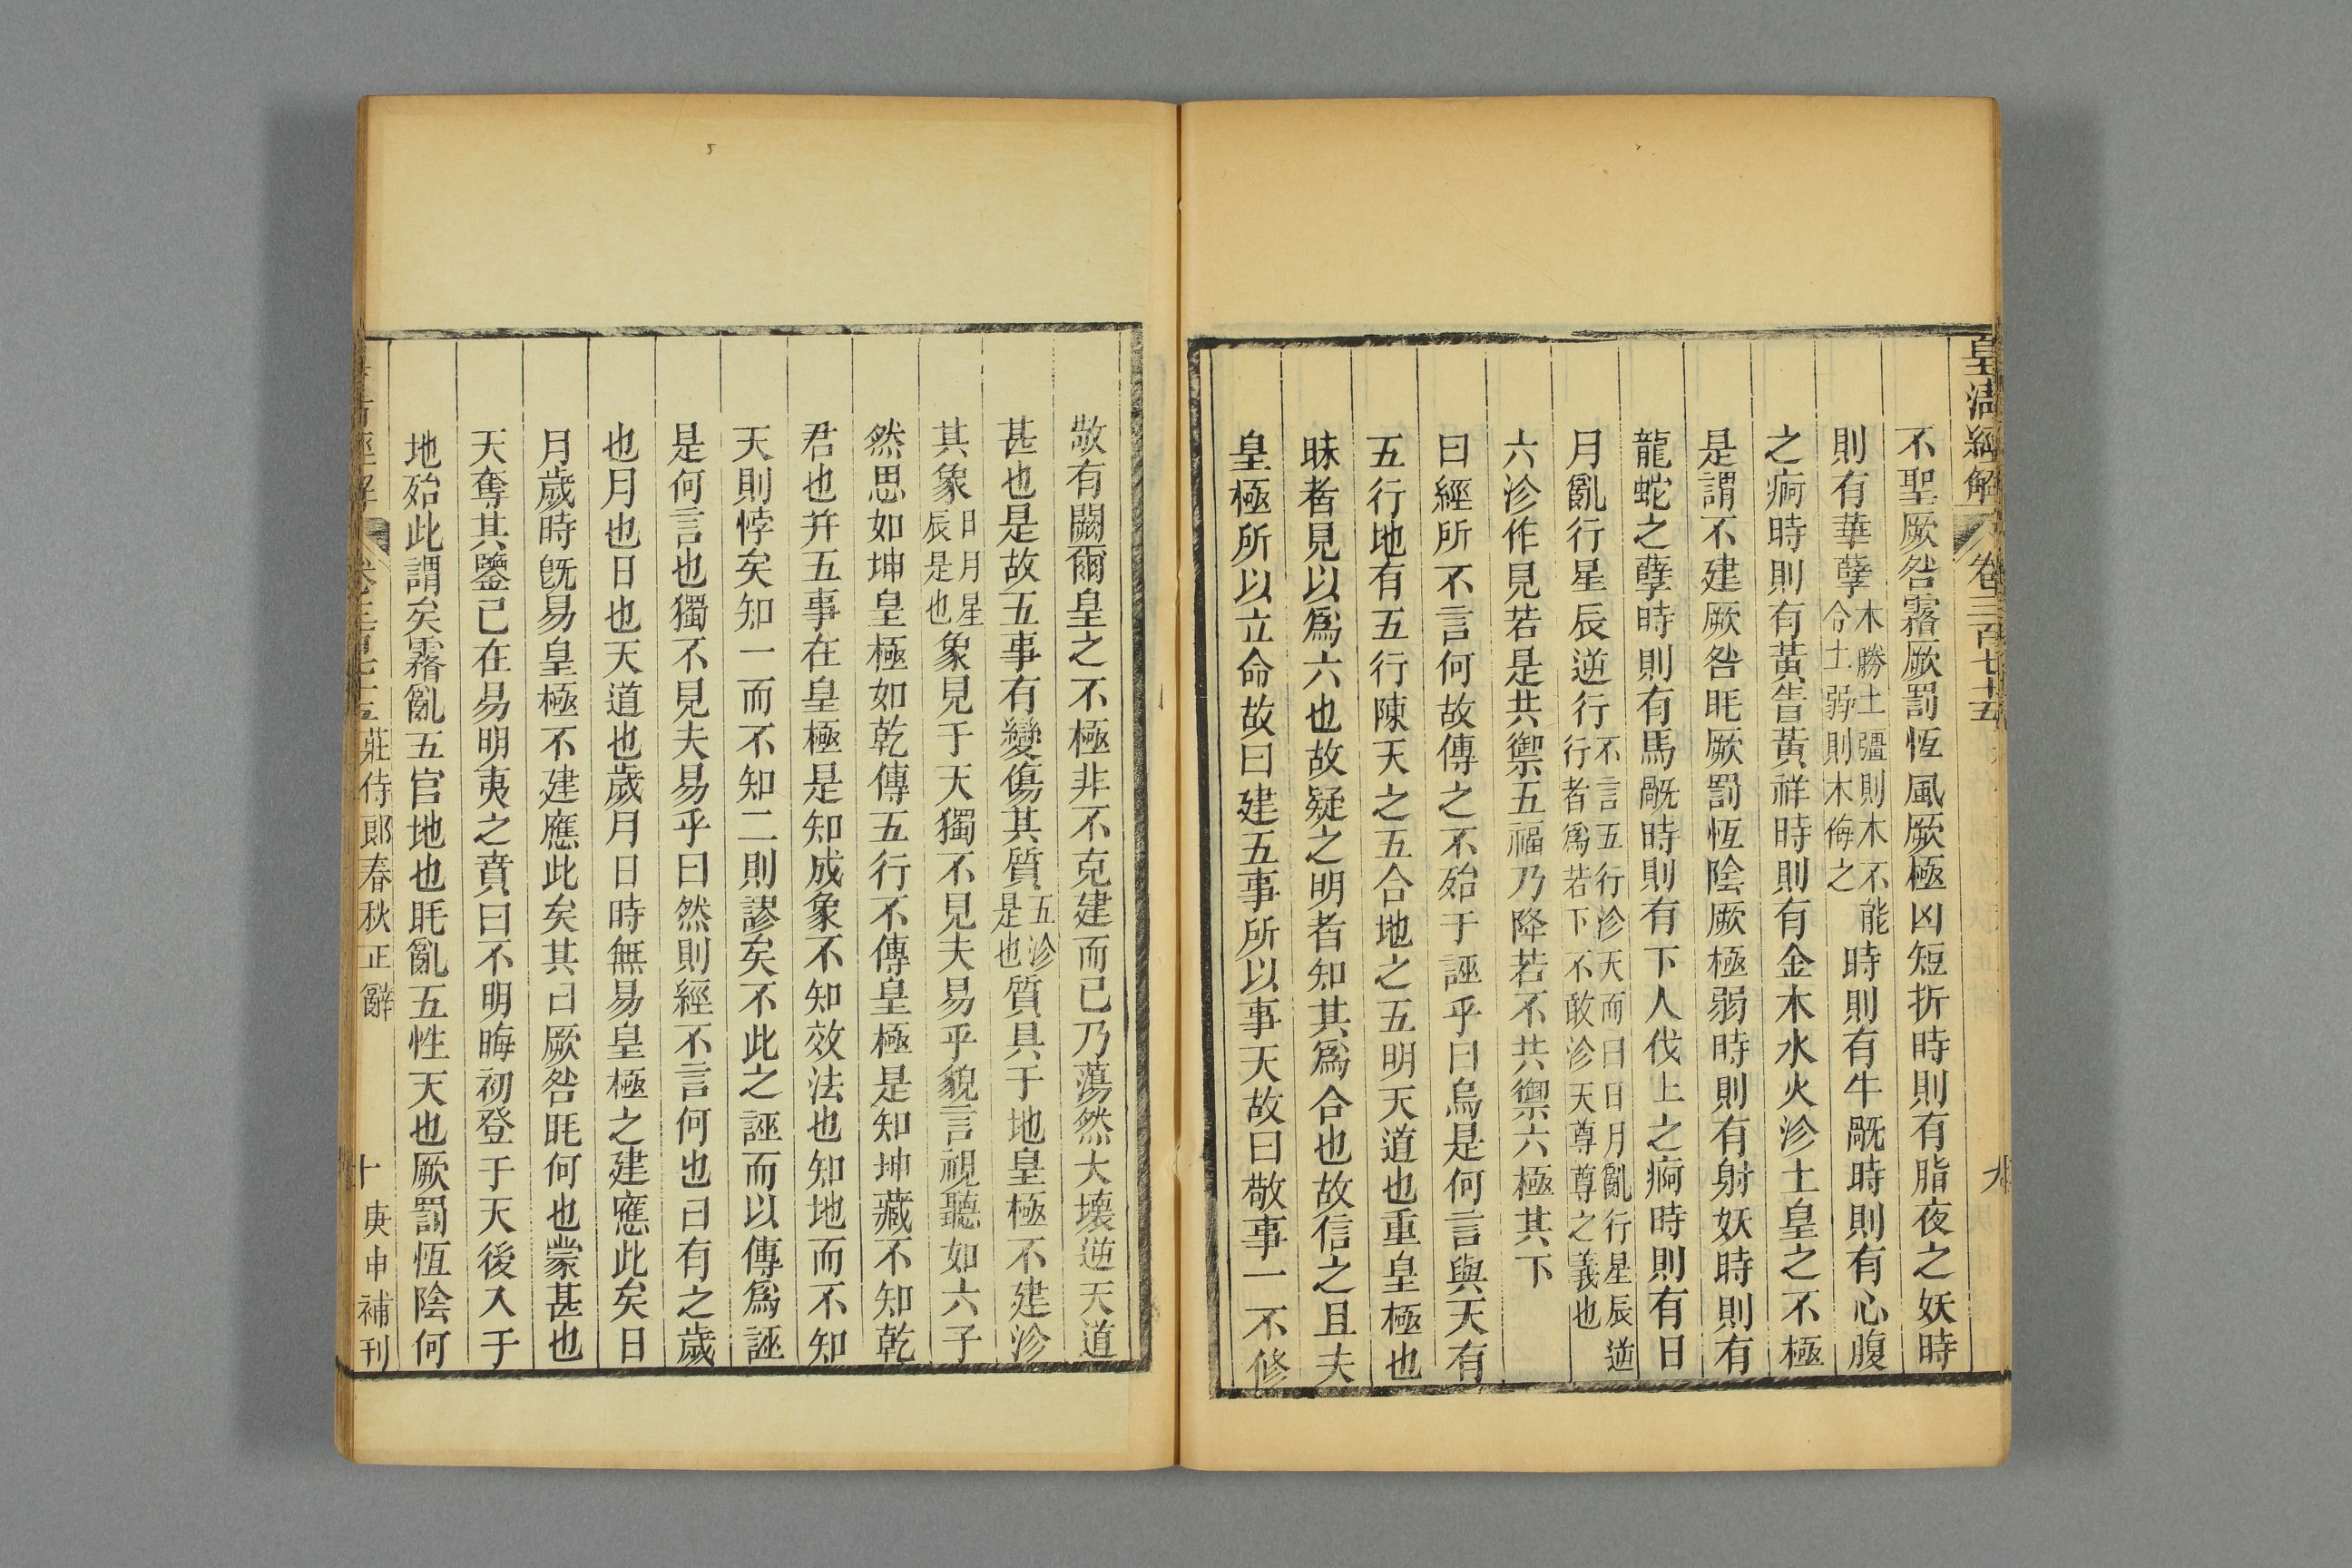 皇清經解 卷三百七十五 九
不聖厥咎霿厥罰恆風厥極凶短折時則有脂夜之妖時
則有華孽木勝土彊則木不能合土弱則木侮之時則有牛旤時則有心腹
之痾時則有黃眚黃祥時則有金木水火沴土皇之不極
是謂不建厥咎眊厥罰恆陰厥極弱時則有射妖時則有
龍蛇之孽時則有馬旤時則有下人伐上之痾時則有日
月亂行星辰逆行不言五行沴天而曰日月亂行星辰逆行者爲若下不敢沴天尊尊之義也
六沴作見若是共禦五福乃降若不共禦六極其下
曰經所不言何故傳之不殆于誣乎曰烏是何言與天有
五行地有五行陳天之五合地之五明天道也重皇極也
昧者見以爲六也故疑之明者知其爲合也故信之且夫
皇極所以立命故曰建五事所以事天故曰敬事一不修
敬有闕爾皇之不極非不克建而已乃蕩然大壞逆天道
甚也是故五事有變傷其質五沴是也質具于地皇極不建沴
其象日月星辰是也象見于天獨不見夫易乎貌言視聽如六子
然思如坤皇極如乾傳五行不傳皇極是知坤藏不知乾
君也幷五事在皇極是知成象不知效法也知地而不知
天則悖矣知一而不知二則謬矣不此之誣而以傳爲誣
是何言也獨不見夫易乎曰然則經不言何也曰有之歲
也月也日也天道也歲月日時無易皇極之建應此矣日
月歲時旣易皇極不建應此矣其曰厥咎眊何也蒙甚也
天奪其鑒已在易明夷之賁曰不明晦初登于天後入于
地殆此謂矣霿亂五官地也眊亂五性天也厥罰恆陰何
莊侍郎春秋正辭 十 庚申補刊